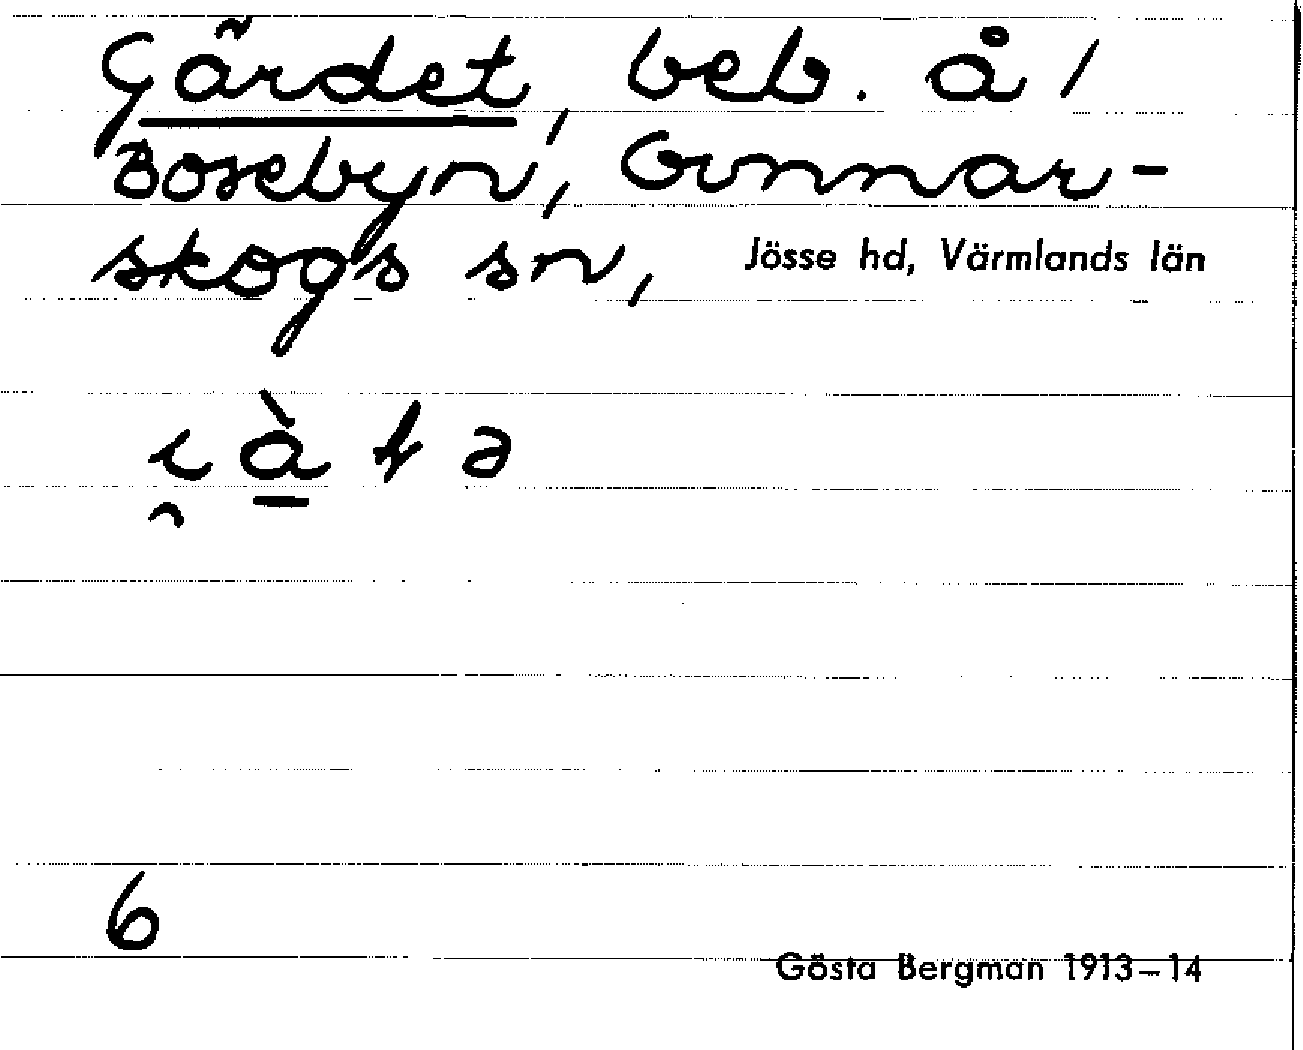 Gärdet, beb. å /
Bosebyn, Gunnar-
skogs sn, Jössе hd, Värmlands län
6
Gösta Bergman 1913–14